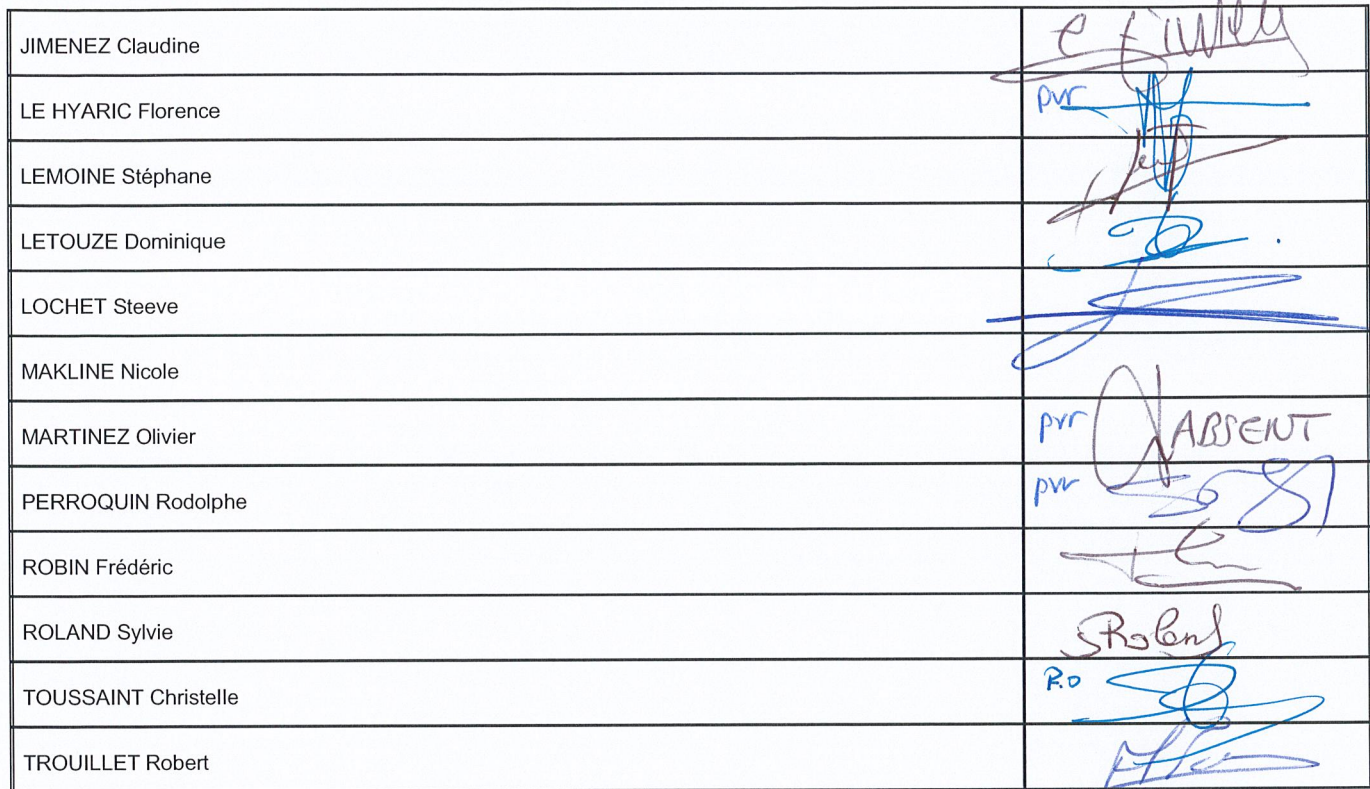 JIMENEZ Claudine
LE HYARIC Florence pvr
LEMOINE Stéphane
LETOUZE Dominique
LOCHET Steeve
MAKLINE Nicole
MARTINEZ Olivier pvr ABSENT
PERROQUIN Rodolphe pvr
ROBIN Frédéric
ROLAND Sylvie SRoland
TOUSSAINT Christelle P.O
TROUILLET Robert